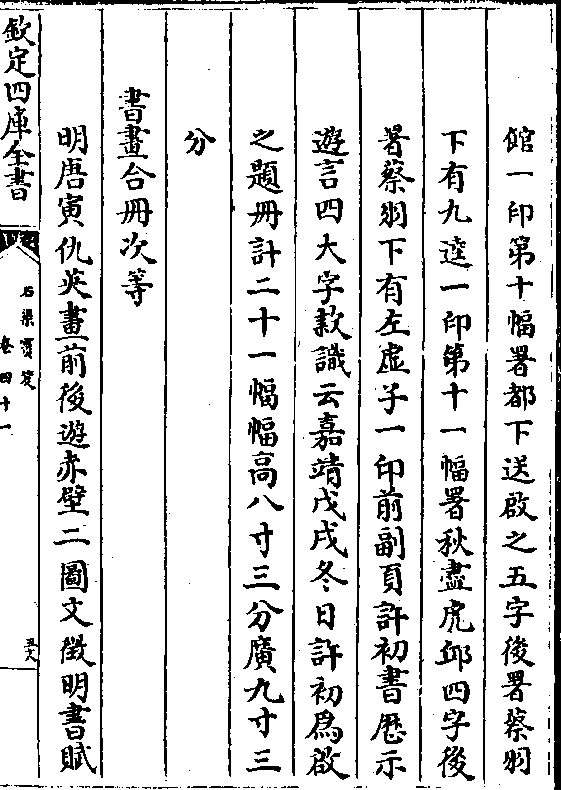 館一印第十幅署都下送啟之五字後署蔡羽
下有九逵一印第十一幅署秋盡虎邱四字後
署蔡羽下有左虛子一印前副頁許初書歷示
遊言四大字款識云嘉靖戊戌冬日許初為啟
之題冊計二十一幅幅高八寸三分廣九寸三
分
書畫合冊次等
明唐寅仇英畫前後遊赤壁二圖文徵明書賦
欽定四庫全書
石渠寶笈
卷四十一